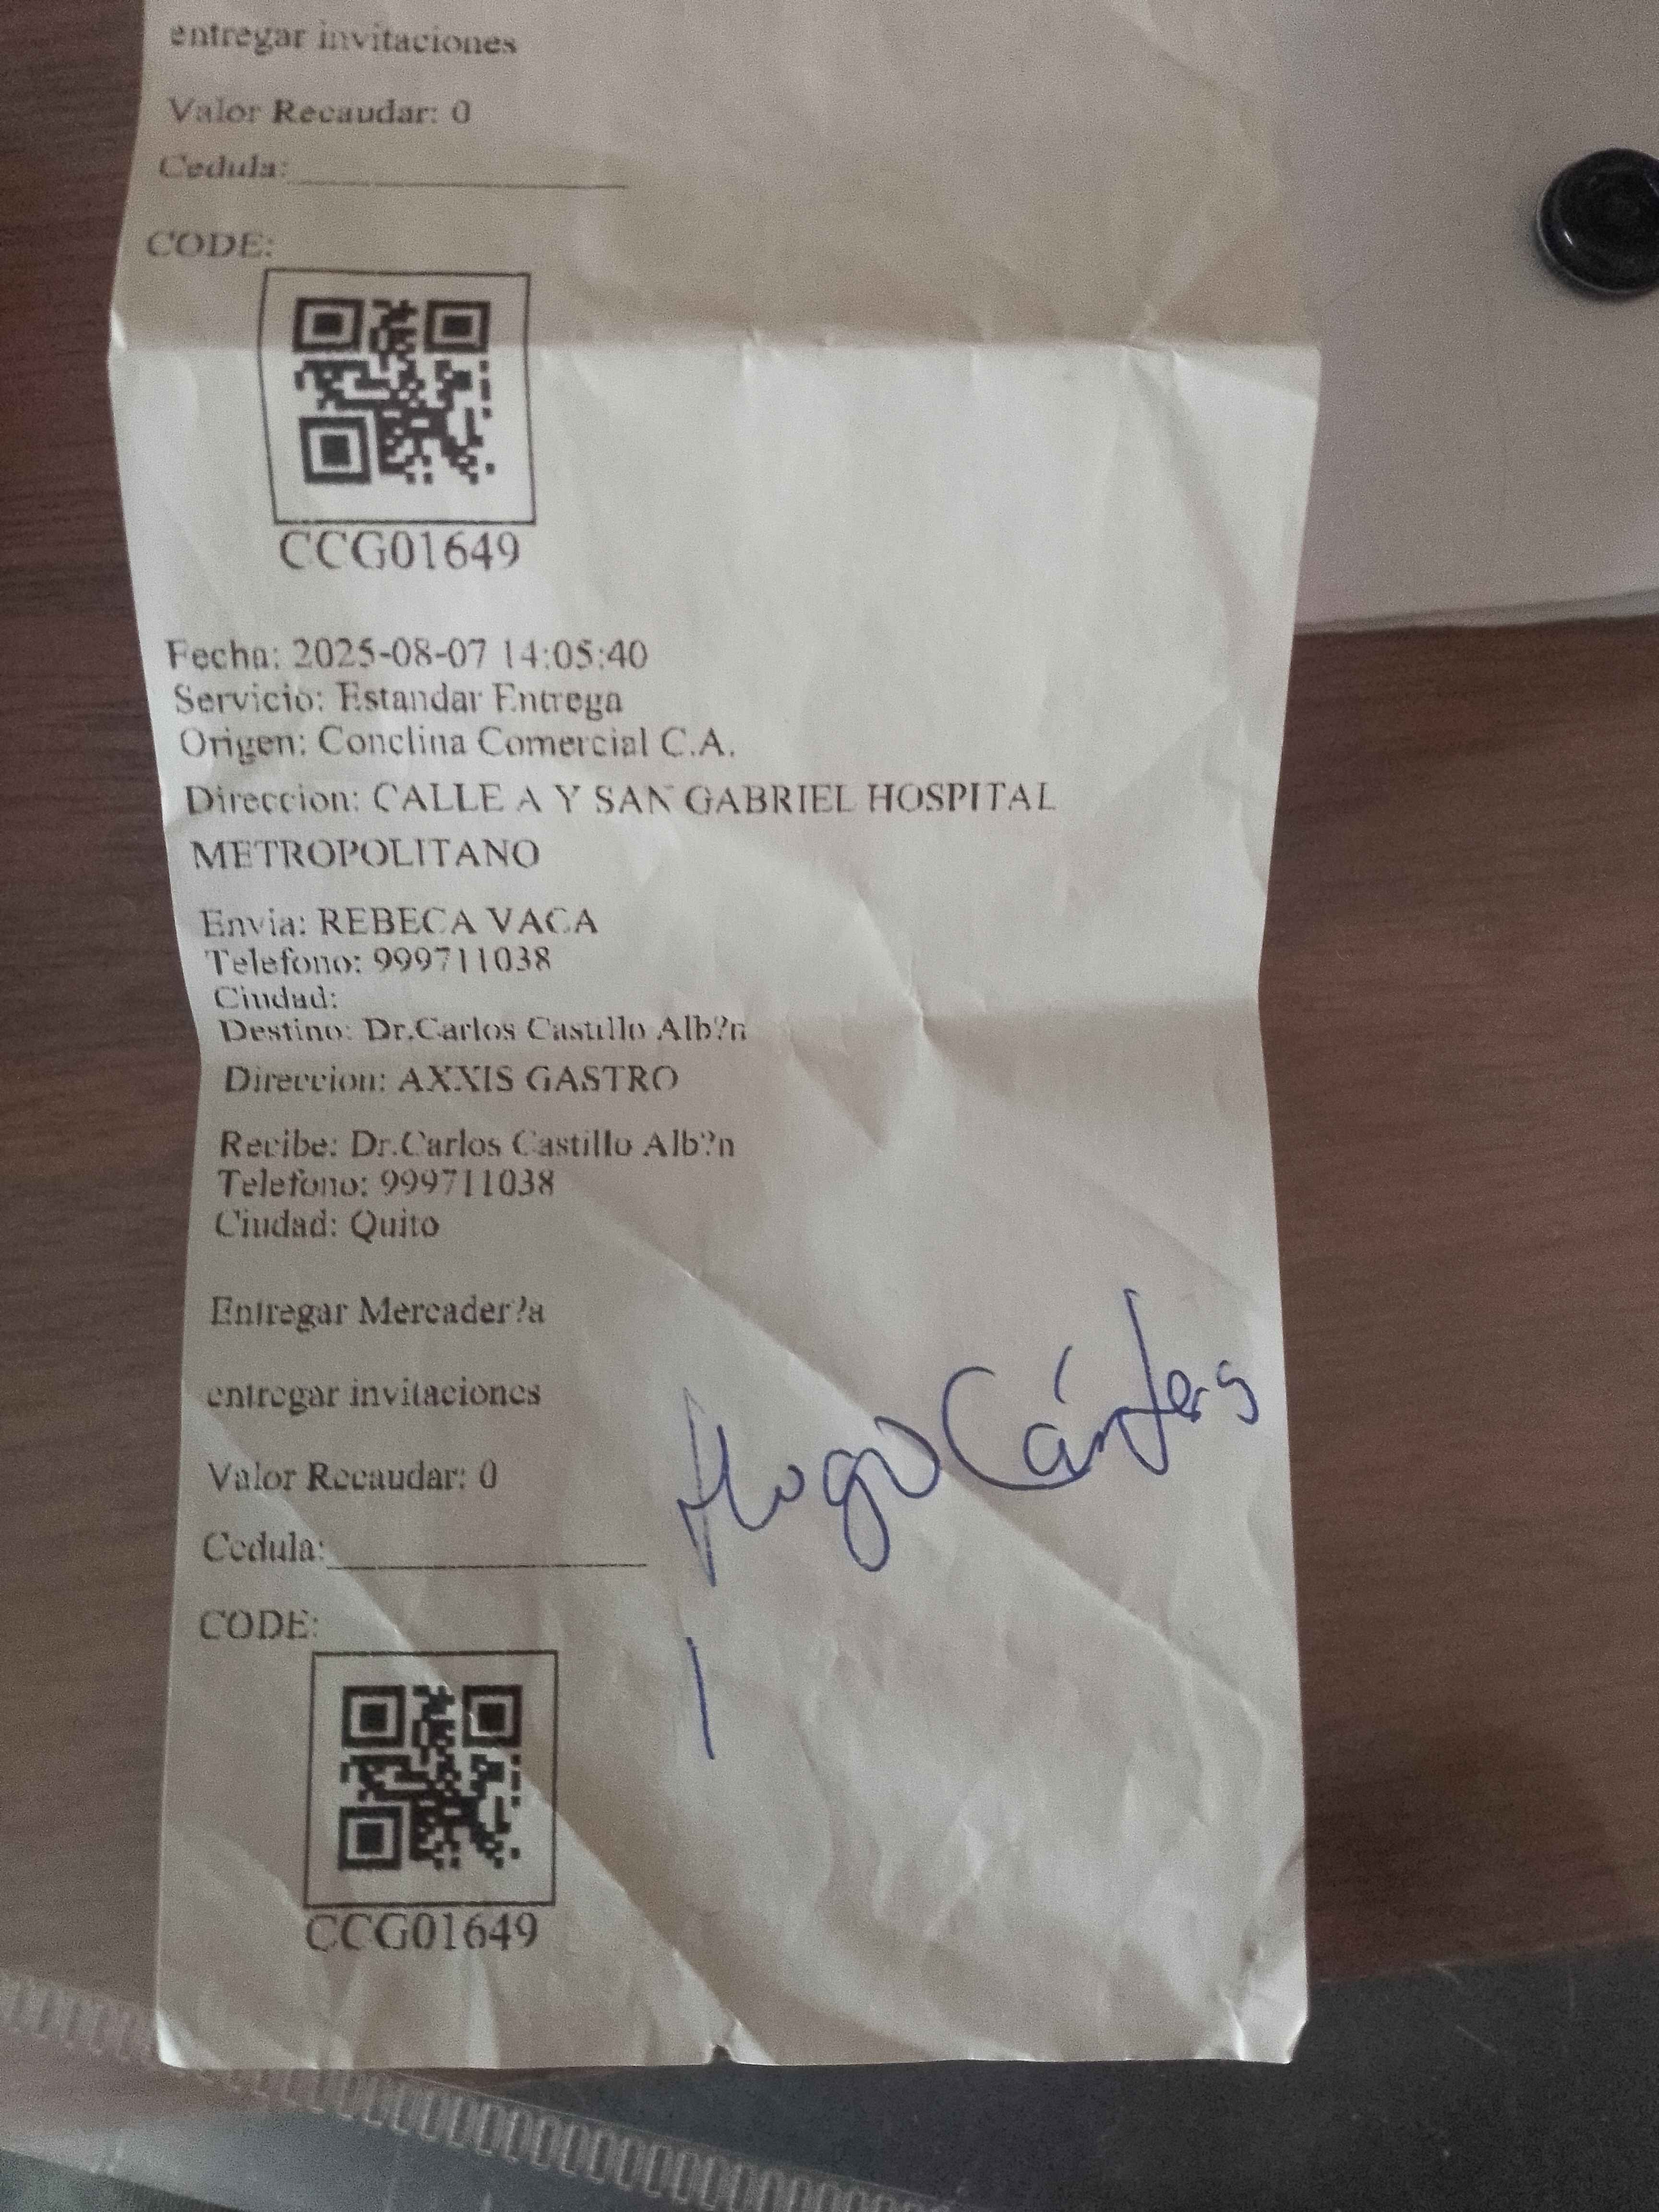 entregar invitaciones
Valor Recaudar: 0
Cedula:
CODE:
CCG01649
Fecha: 2025-08-07 14:05:40
Servicio: Estandar Entrega
Origen: Conclina Comercial C.A.
Direccion: CALLE A Y SAN GABRIEL HOSPITAL
METROPOLITANO
Envia: REBECA VACA
Telefono: 999711038
Ciudad:
Destino: Dr.Carlos Castillo Alb?n
Direccion: AXXIS GASTRO
Recibe: Dr.Carlos Castillo Alb?n
Telefono: 999711038
Ciudad: Quito
Entregar Mercader?a
entregar invitaciones
Hugo
Valor Recaudar: 0
Cedula:
CODE:
CCG01649